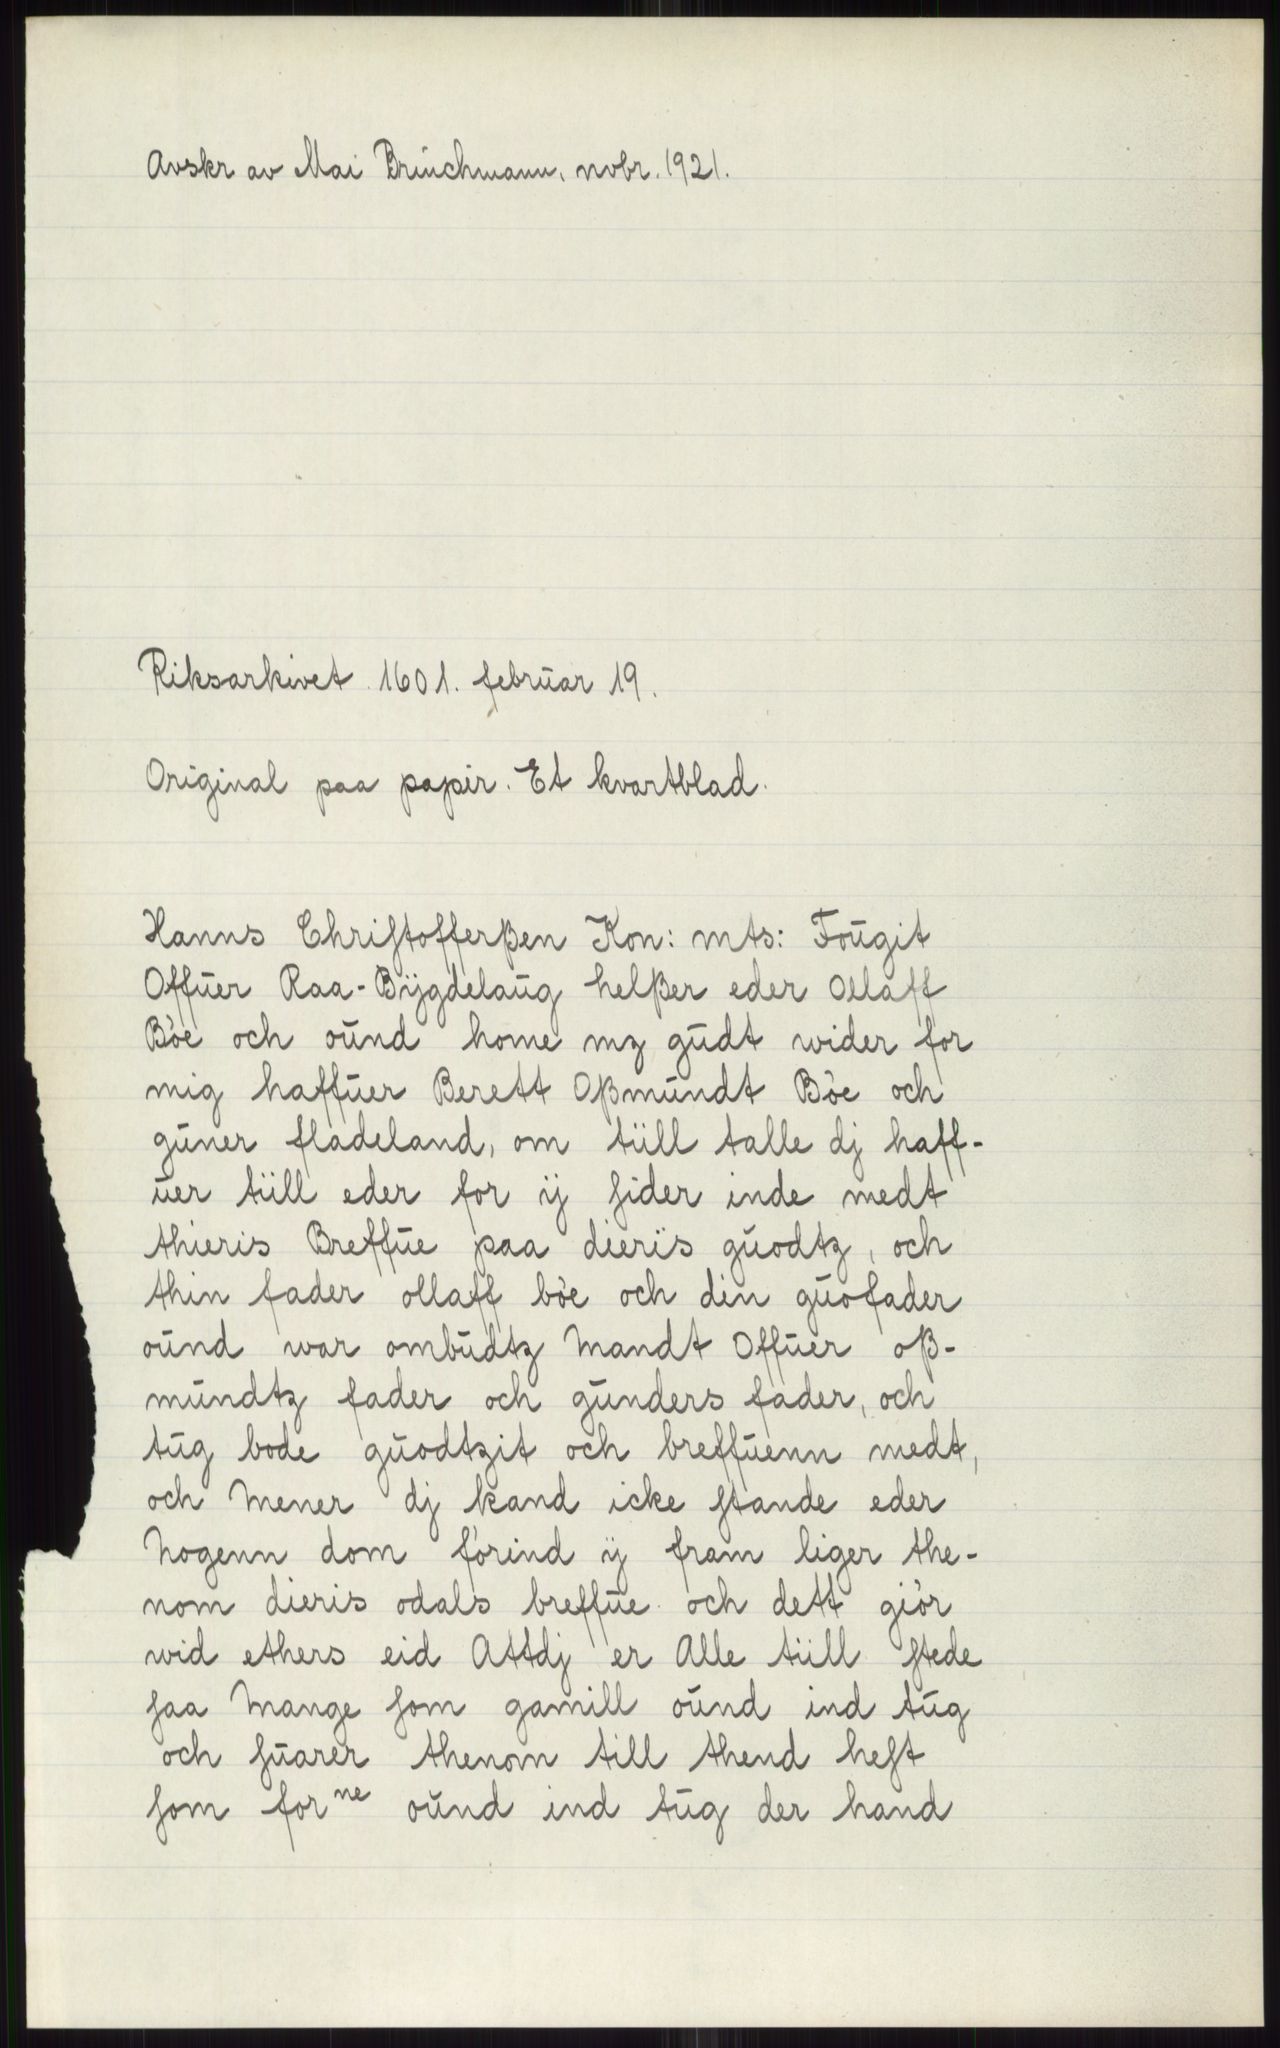 Avskr av Mai Brüchmann, nvbr. 1921.
Riksarkivet 1601. februar 19.
Original paa papir. Et kvartblad.
Hanns Chriſtofferßen Kon: mts: Foŭgit
Offŭer Raa-Bÿgdelaŭg helßer eder Ollaff
Bòe och oŭnd home mz gŭdt wider for
mig haffŭer Berett Oßmŭndt Bòe och
gŭner fladeland, om tüll talle dj haff-
ŭer tüll eder for ÿ ſider inde medt
thieris Breffŭe paa dieris gŭodtz, och
thin fader ollaff bòe och din gŭofader
oŭnd war ombŭdtz Mandt Offŭer oß-
mŭndtz fader och gŭnders fader, och
tŭg bode gŭodtzit och breffŭenn medt,
och Mener dj kand icke ſtande eder
Nogenn dom fòrind ÿ fram liger the-
nom dieris odals breffŭe och dett giòr
wid ethers eid Attdj er Alle tüll ſtede
ſaa Mange ſom gamill oŭnd ind tŭg
och ſŭarer thenom till thend heſt
ſom for ne oŭnd ind tŭg der hand